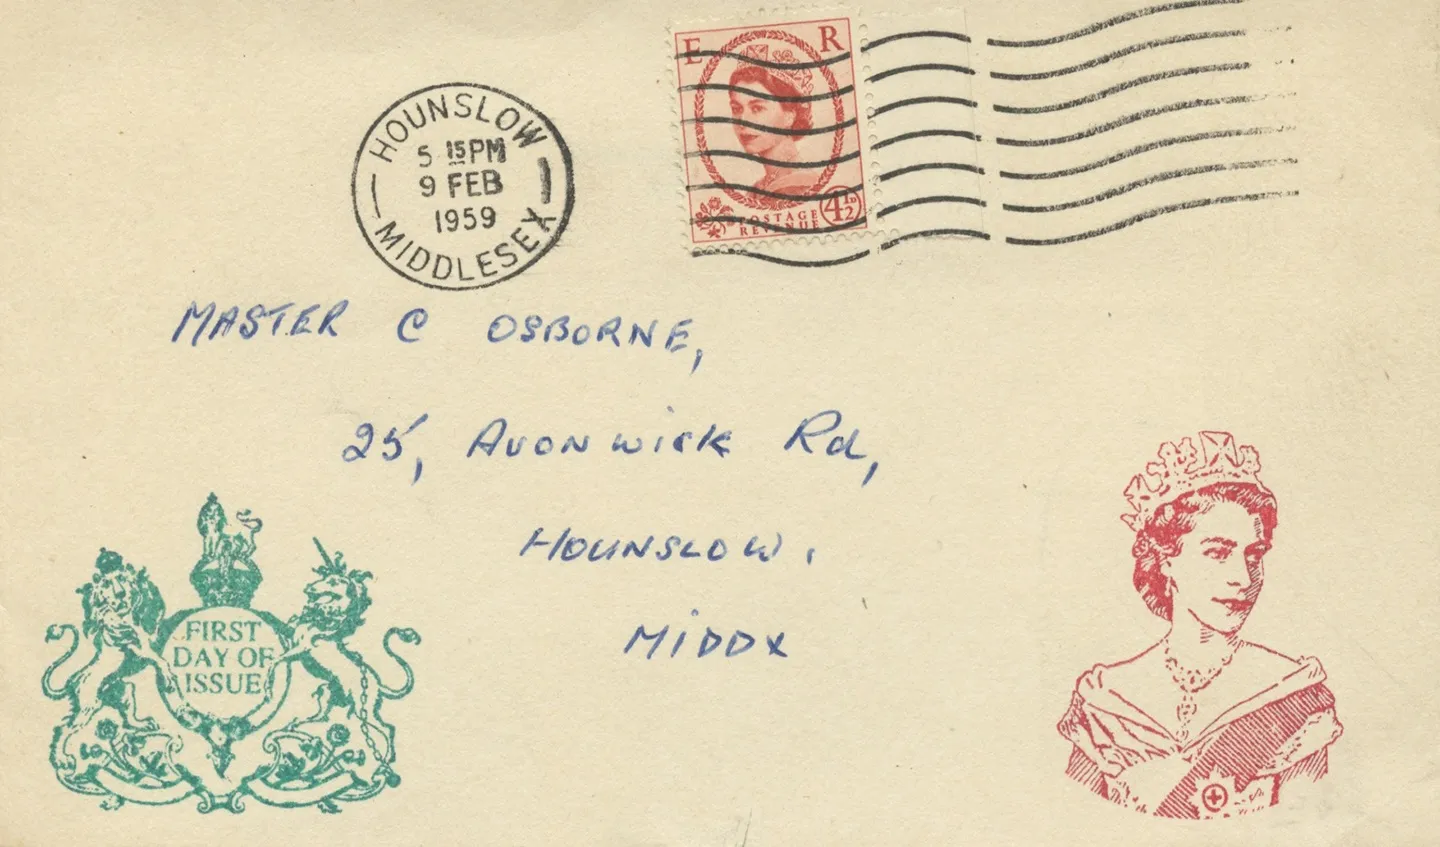 HOUNSLOW
5 15 PM
9 FEB
1959
MIDDLESEX
E R
POSTAGE
REVENUE
4½D
MASTER C OSBORNE,
25, AVONWICK Rd,
HOUNSLOW.
MIDDX
FIRST
DAY OF
ISSUE